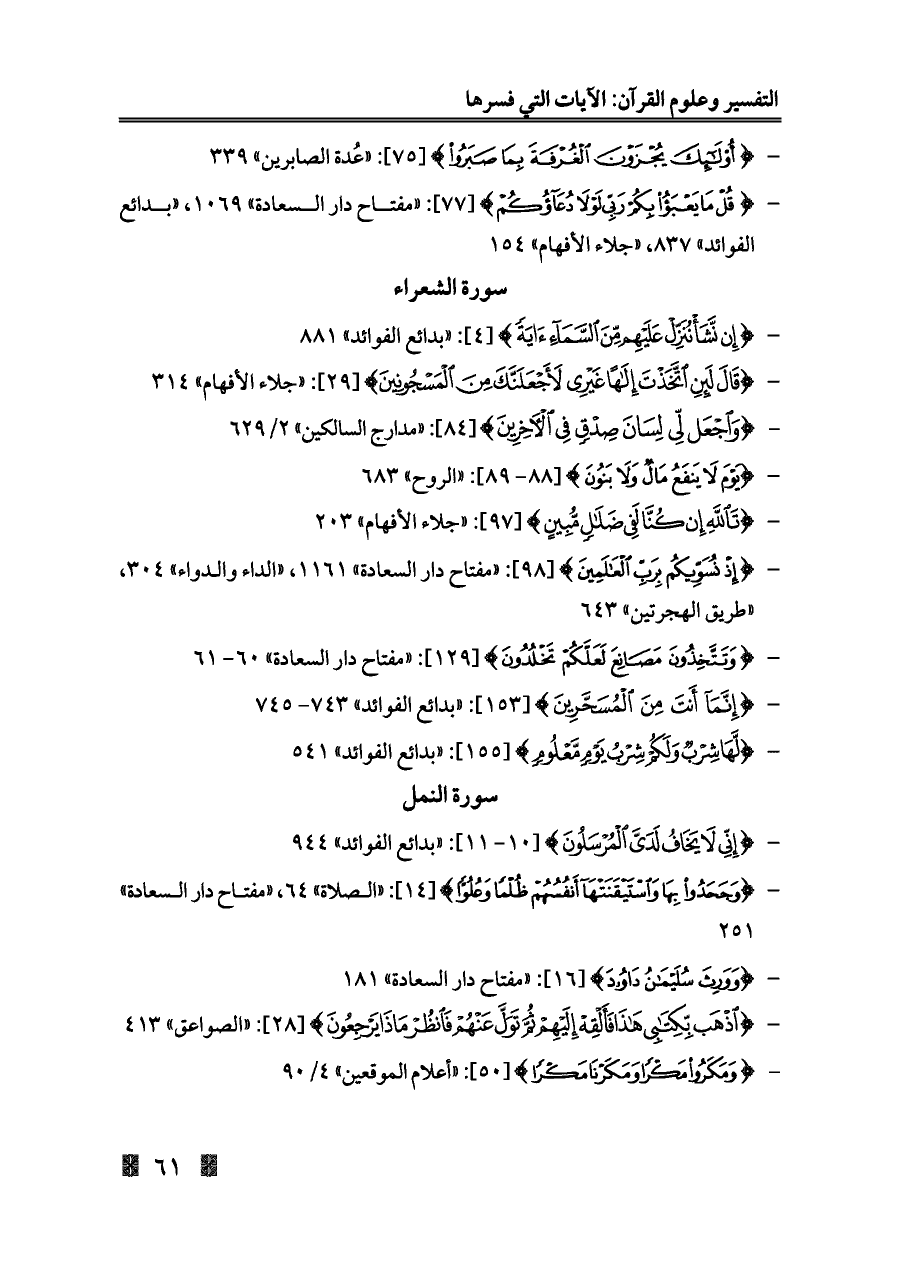 التفسير وعلوم القرآن: الآيات التي فسرها
- ﴿أُوْلَٰٓئِكَ يُجْزَوْنَ ٱلْغُرْفَةَ بِمَا صَبَرُوا۟﴾ [٧٥]: «عُدة الصابرين» ٣٣٩
- ﴿قُلْ مَا يَعْبَؤُا۟ بِكُمْ رَبِّى لَوْلَا دُعَآؤُكُمْ﴾ [٧٧]: «مفتاح دار السعادة» ١٠٦٩، «بدائع
الفوائد» ٨٣٧، «جلاء الأفهام» ١٥٤
سورة الشعراء
- ﴿إِن نَّشَأْ نُنَزِّلْ عَلَيْهِم مِّنَ ٱلسَّمَآءِ ءَايَةً﴾ [٤]: «بدائع الفوائد» ٨٨١
- ﴿قَالَ لَئِنِ ٱتَّخَذْتَ إِلَٰهًا غَيْرِى لَأَجْعَلَنَّكَ مِنَ ٱلْمَسْجُونِينَ﴾ [٢٩]: «جلاء الأفهام» ٣١٤
- ﴿وَٱجْعَل لِّى لِسَانَ صِدْقٍ فِى ٱلْأَخِرِينَ﴾ [٨٤]: «مدارج السالكين» ٢/ ٦٢٩
- ﴿يَوْمَ لَا يَنفَعُ مَالٌ وَلَا بَنُونَ﴾ [٨٨- ٨٩]: «الروح» ٦٨٣
- ﴿تَٱللَّهِ إِن كُنَّا لَفِى ضَلَٰلٍ مُّبِينٍ﴾ [٩٧]: «جلاء الأفهام» ٢٠٣
- ﴿إِذْ نُسَوِّيكُم بِرَبِّ ٱلْعَٰلَمِينَ﴾ [٩٨]: «مفتاح دار السعادة» ١١٦١، «الداء والدواء» ٣٠٤،
«طريق الهجرتين» ٦٤٣
- ﴿وَتَتَّخِذُونَ مَصَانِعَ لَعَلَّكُمْ تَخْلُدُونَ﴾ [١٢٩]: «مفتاح دار السعادة» ٦٠- ٦١
- ﴿إِنَّمَآ أَنتَ مِنَ ٱلْمُسَحَّرِينَ﴾ [١٥٣]: «بدائع الفوائد» ٧٤٣- ٧٤٥
- ﴿لَّهَا شِرْبٌ وَلَكُمْ شِرْبُ يَوْمٍ مَّعْلُومٍ﴾ [١٥٥]: «بدائع الفوائد» ٥٤١
سورة النمل
- ﴿إِنِّى لَا يَخَافُ لَدَىَّ ٱلْمُرْسَلُونَ﴾ [١٠- ١١]: «بدائع الفوائد» ٩٤٤
- ﴿وَجَحَدُوا۟ بِهَا وَٱسْتَيْقَنَتْهَآ أَنفُسُهُمْ ظُلْمًا وَعُلُوًّا﴾ [١٤]: «الصلاة» ٦٤، «مفتاح دار السعادة»
٢٥١
- ﴿وَوَرِثَ سُلَيْمَٰنُ دَاوُۥدَ﴾ [١٦]: «مفتاح دار السعادة» ١٨١
- ﴿ٱذْهَب بِّكِتَٰبِى هَٰذَا فَأَلْقِهْ إِلَيْهِمْ ثُمَّ تَوَلَّ عَنْهُمْ فَٱنظُرْ مَاذَا يَرْجِعُونَ﴾ [٢٨]: «الصواعق» ٤١٣
- ﴿وَمَكَرُوا۟ مَكْرًا وَمَكَرْنَا مَكْرًا﴾ [٥٠]: «أعلام الموقعين» ٤/ ٩٠
٦١